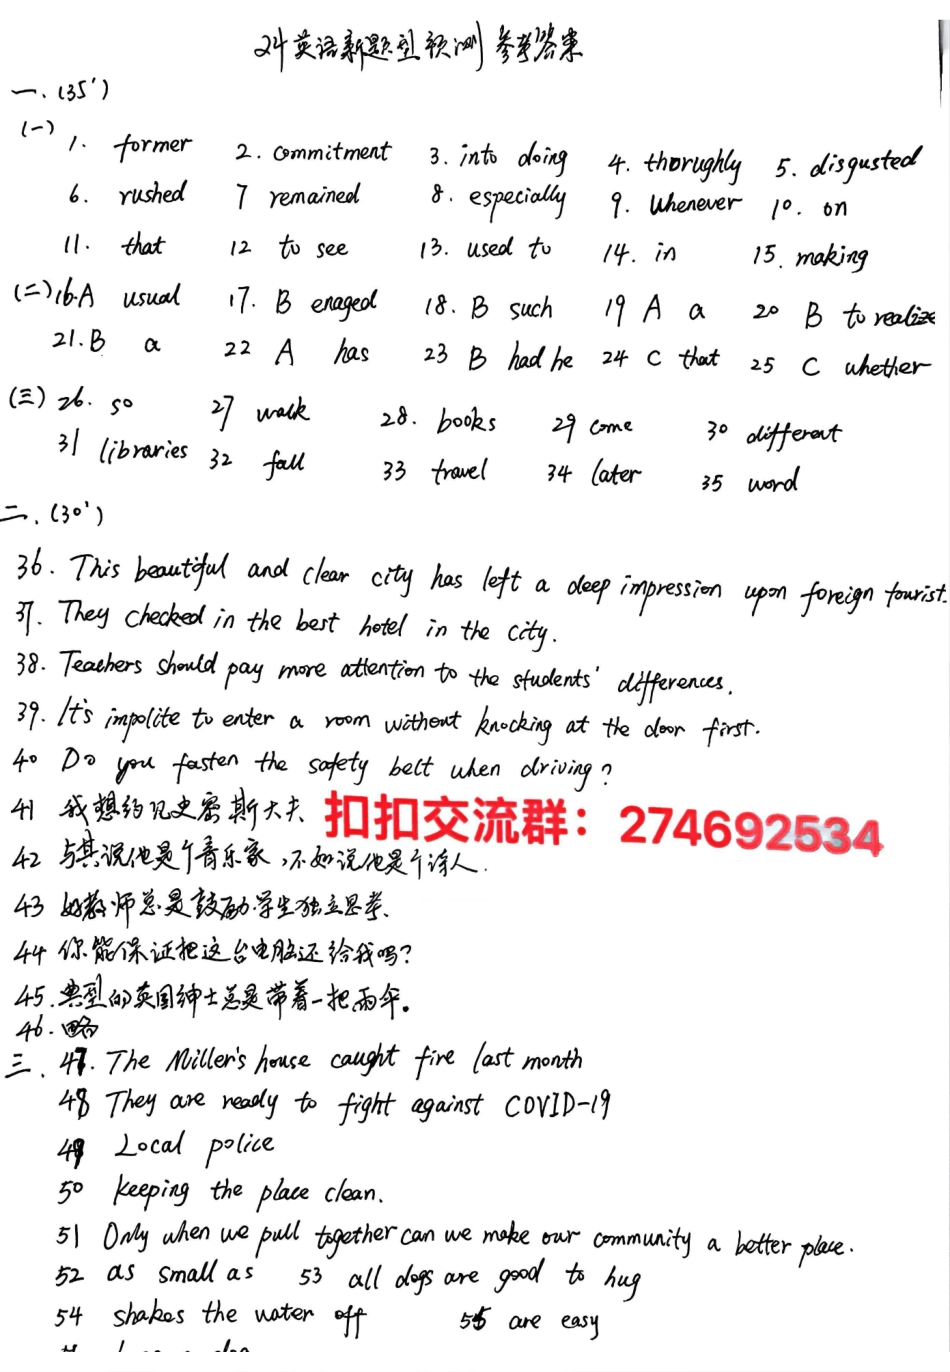 24英语新题型预测参考答案
一、(35')
(一) 1. former 2. commitment 3. into doing 4. thoroughly 5. disgusted
6. rushed 7 remained 8. especially 9. whenever 10. on
11. that 12 to see 13. used to 14. in 15. making
(二) 16.A usual 17. B enaged 18. B such 19 A a 20 B to realize
21. B a 22 A has 23 B had he 24 C that 25 C whether
(三) 26. so 27 walk 28. books 29 come 30 different
31 libraries 32 fall 33 travel 34 later 35 word
二、(30')
36. This beautiful and clear city has left a deep impression upon foreign tourist.
37. They checked in the best hotel in the city.
38. Teachers should pay more attention to the students' differences.
39. It's impolite to enter a room without knocking at the door first.
40 Do you fasten the safety belt when driving?
41 我想约见史密斯大夫.
扣扣交流群：274692534
42 与其说他是个音乐家,不如说他是个诗人.
43 好教师总是鼓励学生独立思考.
44 你能保证把这台电脑还给我吗?
45. 典型的英国绅士总是带着一把雨伞。
46. 略
三. 47. The Miller's house caught fire last month
48 They are ready to fight against COVID-19
49 Local police
50 keeping the place clean.
51 Only when we pull together can we make our community a better place.
52 as small as 53 all dogs are good to hug
54 shakes the water off 55 are easy